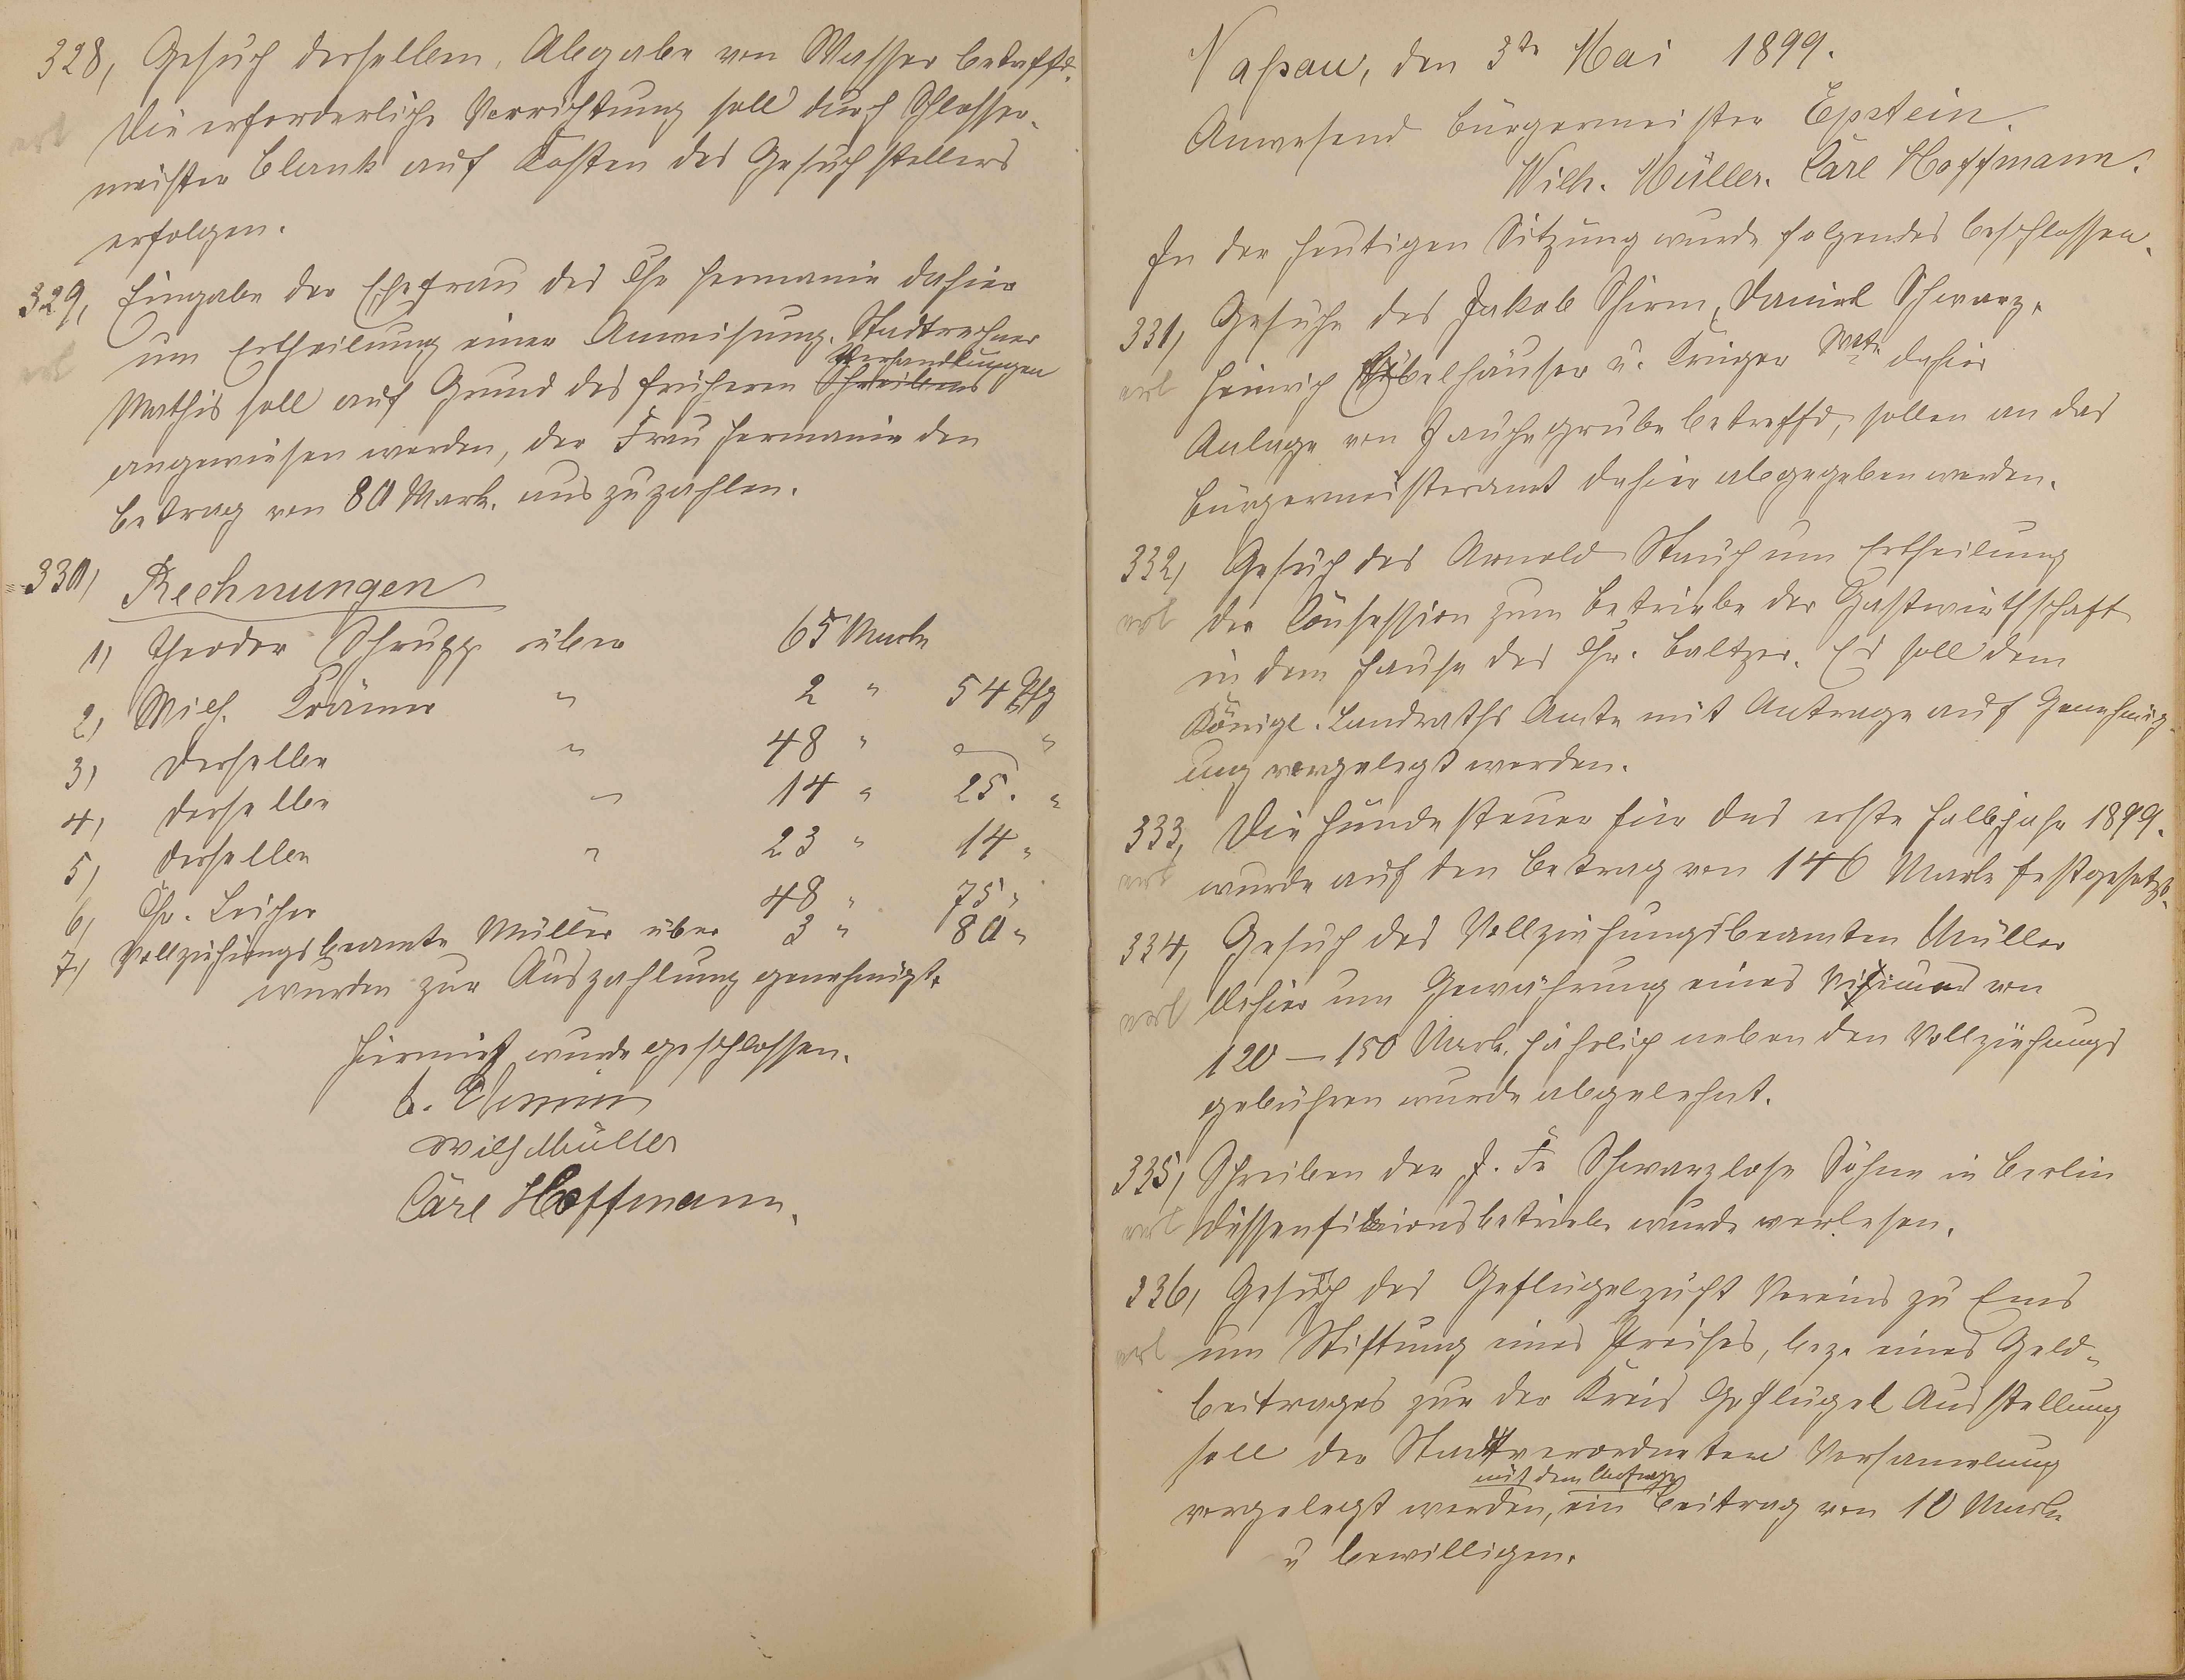 328, Gesuch desselben, Abgabe von Wasser betreffd.
erl
Die erforderliche Vorrichtung soll durch Schlosser-
meister Blank auf Kosten des Gesuchstellers
erfolgen.
329, Eingabe der Ehefrau des Chr Hermanie dahier
um Ertheilung einer Anweisung. Stadtrechner
erl
Verhandlungen
Mathis soll auf Grund des früheren Schreibens
angewiesen werden, der Frau Hermanie den
Betrag von 80 Mark. auszuzahlen.
330, Rechnungen
1, Theodor Schrupp über 65 Mark
2, Wilh. Krämer " 2 " 54 Pfg
3, Derselbe " 48 " — "
4, Derselbe " 14 " 25. "
5, Derselbe " 23 " 14 "
6, Chr. Leicher 48 " 75 "
7, Vollziehungsbeamte Müller über 3 " 80 "
wurden zur Auszahlung genehmigt.
Hiermit wurde geschlossen.
Wilh Müller
Carl Hoffmann.
Naßau, den 3te Mai 1899.
Anwesend Bürgermeister Epstein.
Wilh. Müller. Carl Hoffmann.
In der heutigen Sitzung wurde folgendes beschlossen.
331, Gesuche des Jakob Schirm, Daniel Schwarz,
erl
Heinrich Hübelhäuser u. Krüger Wwe dahier
Anlage von Jauchegrube betreffd, sollen an das
Bürgermeisteramt dahier abgegeben werden.
332, Gesuch des Arnold Stauch um Ertheilung
erl
der Consession zum Betriebe der Gastwirthschaft
in dem Hause des Chr. Baltzer. Es soll dem
Königl. Landraths Amte mit Antrage auf Genehmig-
ung vorgelegt werden.
333, Die Hundesteuer für das erste Halbjahr 1899.
erl
wurde auf den Betrag von 146 Mark festgesetzt.
334, Gesuch des Vollziehungsbeamten Müller
erl
dahier um Gewährung eines von
120 — 150 Mark. jährlich neben den Vollziehungs
gebühren wurde abgelehnt.
335, Schreiben der J. Fr Schwarzlose Söhne in Berlin
erl
wurde verlesen.
336, Gesuch des Geflügelzucht Vereins zu Ems
erl
um Stiftung eines Preises, bez. eines Geld-
beitrages zur der Kreis Geflügel Ausstellung
soll der Stadtverordneten Versamlung
mit dem Antrage
vorgelegt werden, ein Beitrag von 10 Mark
z bewilligen.